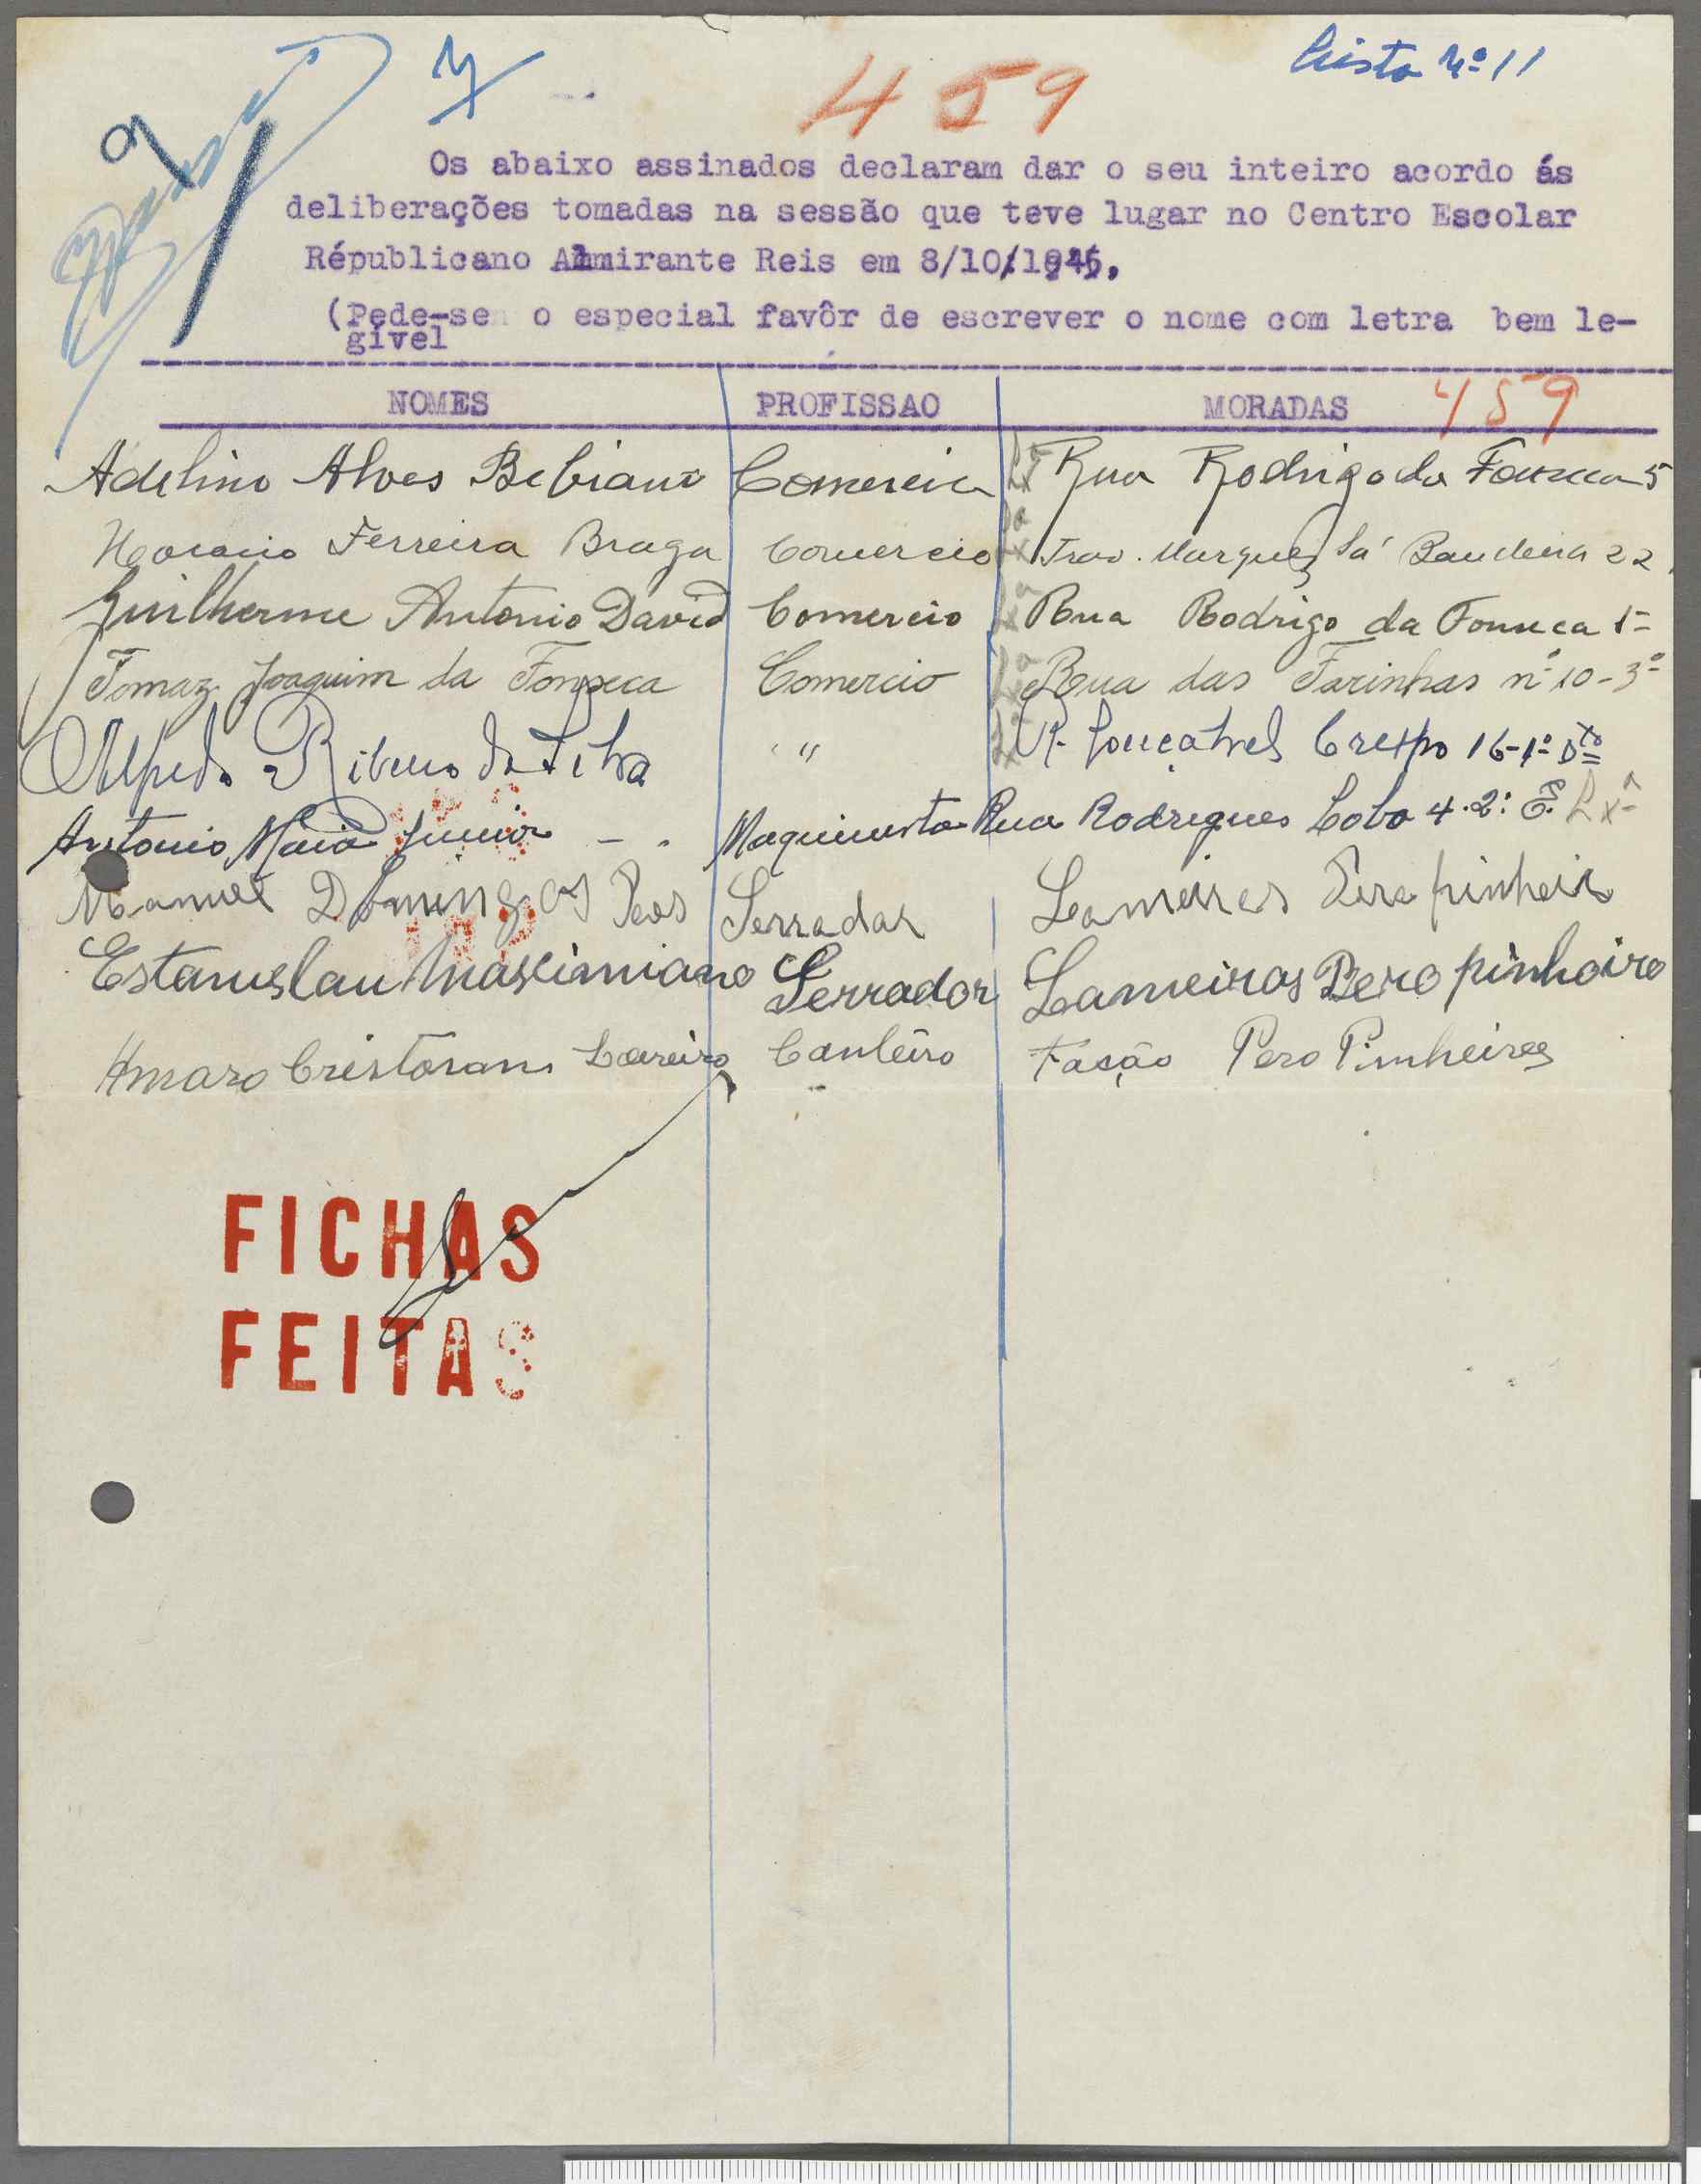 Lista nº 11
9
459
Os abaixo assinados declaram dar o seu inteiro acordo ás
deliberações tomadas na sessão que teve lugar no Centro Escolar
Républicano Almirante Reis em 8/10/1945.
(Pede-se o especial favôr de escrever o nome com letra bem le-
givel
NOMES PROFISSAO MORADAS 459
Adelino Alves Bebiano Comercio Lxa Rua Rodrigo da Fonseca 5
Horacio Ferreira Braga Comercio Lxa Trav. Marquez Sá Bandeira 22
Guilherme Antonio David Comercio Lxa Rua Rodrigo da Fonseca 1-
Tomaz Joaquim da Fonseca Comercio Lxa Rua das Farinhas nº 10-3º
Alfredo Ribeiro da Silva " Lxa R. Gonçalves Crespo 16-1º Dto
Antonio Maia Junior - . Maquinista Rua Rodrigues Lobo 4.2º E. Lxa
Manuel Domingos Serrador Lameiras Pero pinheiro
Estanislau Maximiano Serrador Lameiras Pero pinheiro
Amaro Canteiro Fação Pero Pinheiro
FICHAS
FEITAS